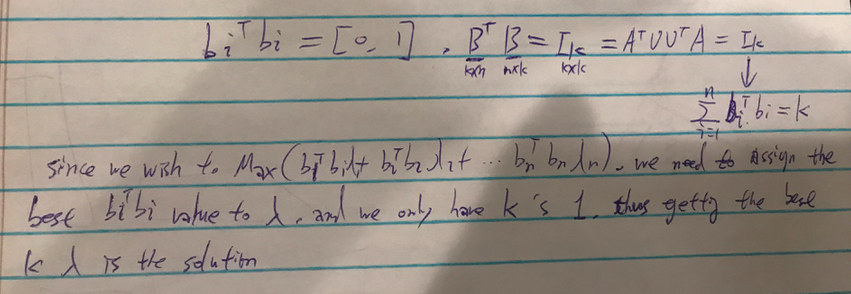 bᵢᵀbᵢ = [0, 1] . BᵀB = Iₖ = AᵀUUᵀA = Iₖ
k×n n×k k×k ↓
∑ᵢ₌₁ⁿ bᵢᵀbᵢ = k
since we wish to Max(b₁ᵀb₁λ₁+ b₂ᵀb₂λ₂+ ... bₙᵀbₙλₙ). we need to assign the
best bᵢᵀbᵢ value to λ, and we only have k's 1. thus getting the best
k λ is the solution